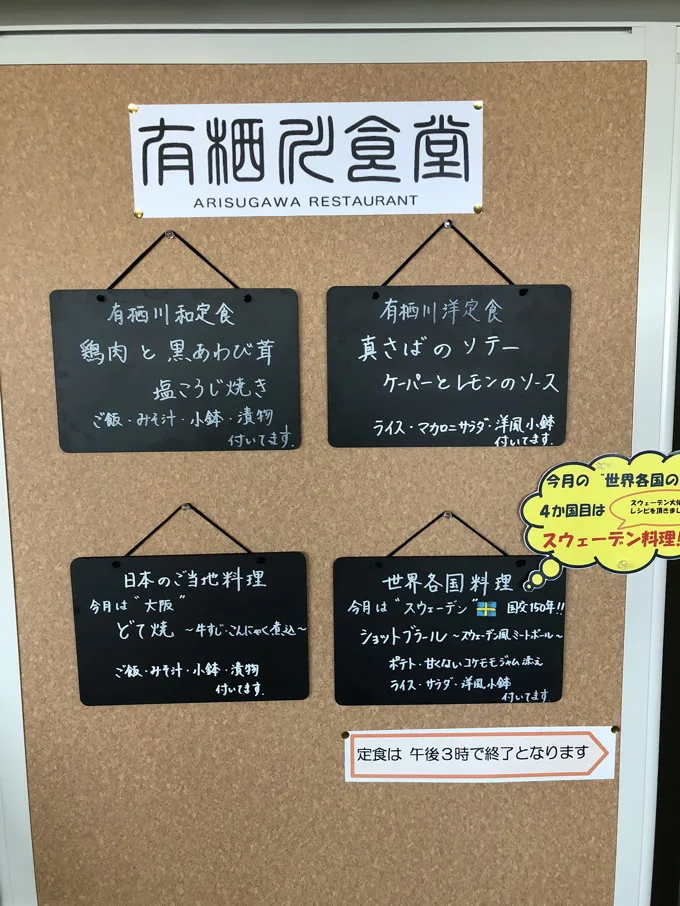 有栖川食堂
ARISUGAWA RESTAURANT
有栖川和定食
鶏肉と黒あわび茸
塩こうじ焼き
ご飯・みそ汁・小鉢・漬物
付いてます。
有栖川洋定食
真さばのソテー
ケーパーとレモンのソース
ライス・マカロニサラダ・洋風小鉢
付いてます。
今月の "世界各国の
4か国目は
スウェーデン大使
レシピを頂きまし
スウェーデン料理!
日本のご当地料理
今月は "大阪"
どて焼 ～牛すじ・こんにゃく煮込～
ご飯・みそ汁・小鉢・漬物
付いてます。
世界各国料理
今月は "スウェーデン" 国交150年!!
ショットブラール ～スウェーデン風ミートボール～
ポテト・甘くないコケモモジャム添え
ライス・サラダ・洋風小鉢
付いてます
定食は 午後3時で終了となります